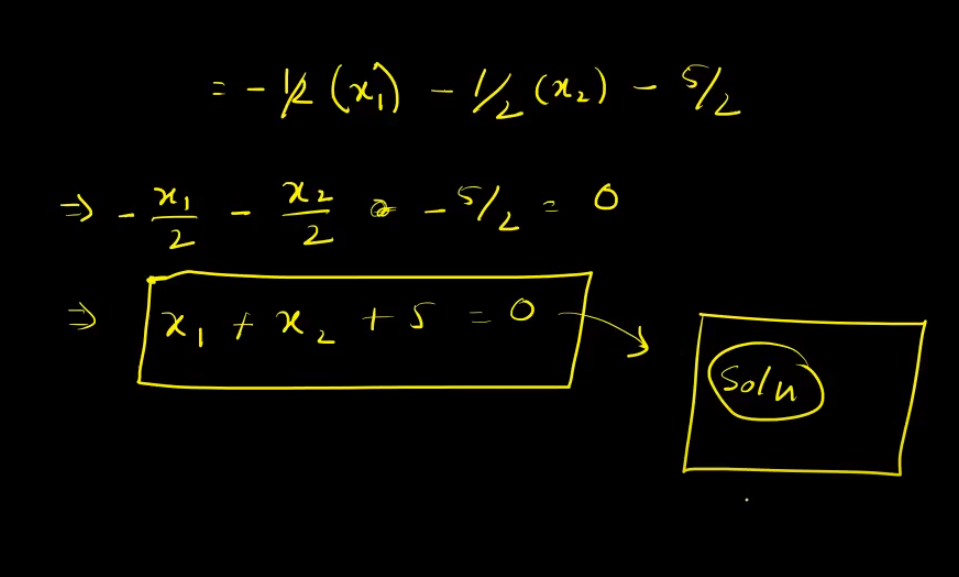 = - 1/2 (x₁) - 1/2 (x₂) - 5/2
⇒ - x₁/2 - x₂/2 - 5/2 = 0
⇒ x₁ + x₂ + 5 = 0 →
Soln